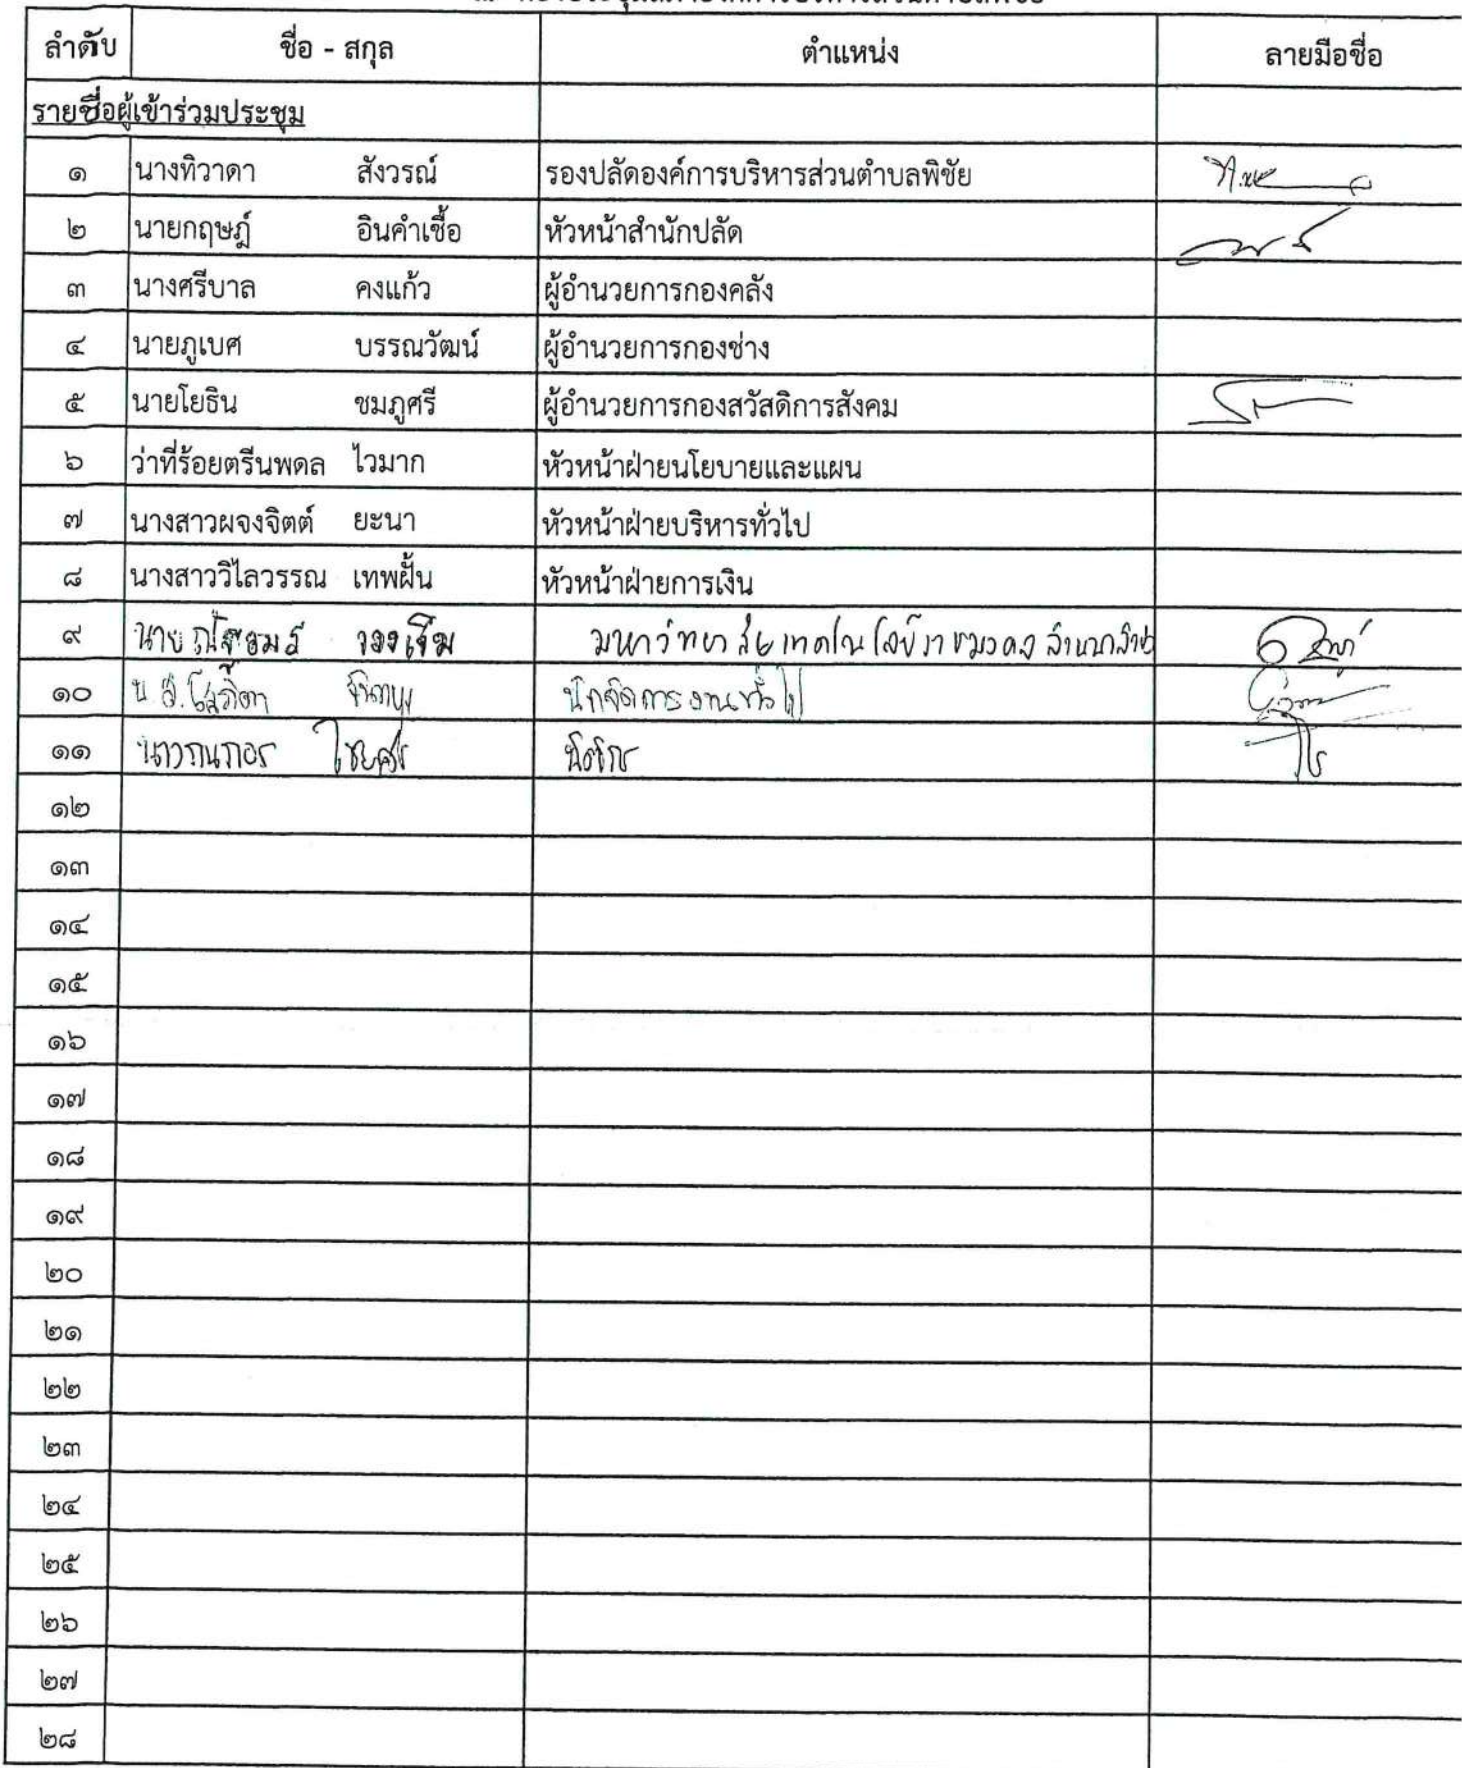 ลำดับ ชื่อ - สกุล ตำแหน่ง ลายมือชื่อ
รายชื่อผู้เข้าร่วมประชุม
๑ นางทิวาดา สังวรณ์ รองปลัดองค์การบริหารส่วนตำบลพิชัย
๒ นายกฤษฎ์ อินคำเชื้อ หัวหน้าสำนักปลัด
๓ นางศรีบาล คงแก้ว ผู้อำนวยการกองคลัง
๔ นายภูเบศ บรรณวัฒน์ ผู้อำนวยการกองช่าง
๕ นายโยธิน ชมภูศรี ผู้อำนวยการกองสวัสดิการสังคม
๖ ว่าที่ร้อยตรีนพดล ไวมาก หัวหน้าฝ่ายนโยบายและแผน
๗ นางสาวผจงจิตต์ ยะนา หัวหน้าฝ่ายบริหารทั่วไป
๘ นางสาววิไลวรรณ เทพฝั้น หัวหน้าฝ่ายการเงิน
๙ นาย มหาวิทยาลัยเทคโนโลยีราชมงคลล้านนา
๑๐ น.ส.โสภิตา นักจัดการงานทั่วไป
๑๑
๑๒
๑๓
๑๔
๑๕
๑๖
๑๗
๑๘
๑๙
๒๐
๒๑
๒๒
๒๓
๒๔
๒๕
๒๖
๒๗
๒๘